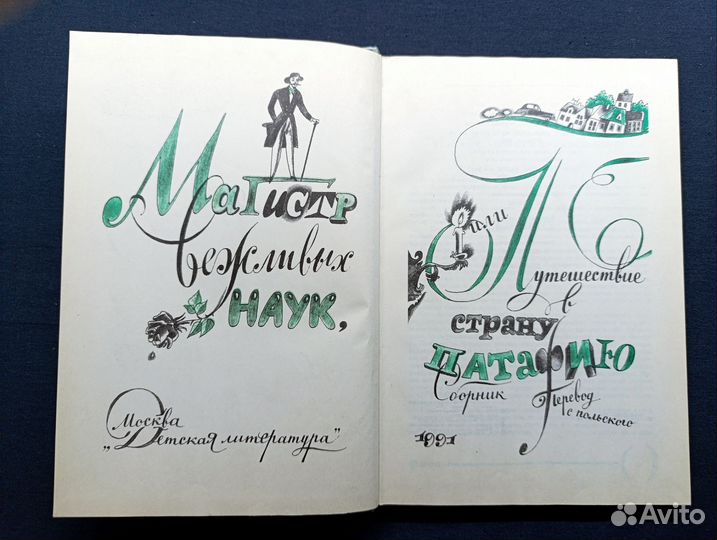 Магистр
вежливых
наук,
Москва
„Детская литература"
или
Путешествие
в
страну
Патафию
Сборник Перевод
с польского
1991
Avito